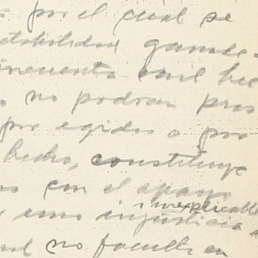 por el cual se
estabilidad ganade-
cincuenta mil hec
no podran pros
por egidos o pro
hecho, constituye
con el apoyo
inexplicable
una injusticia
no faculta en